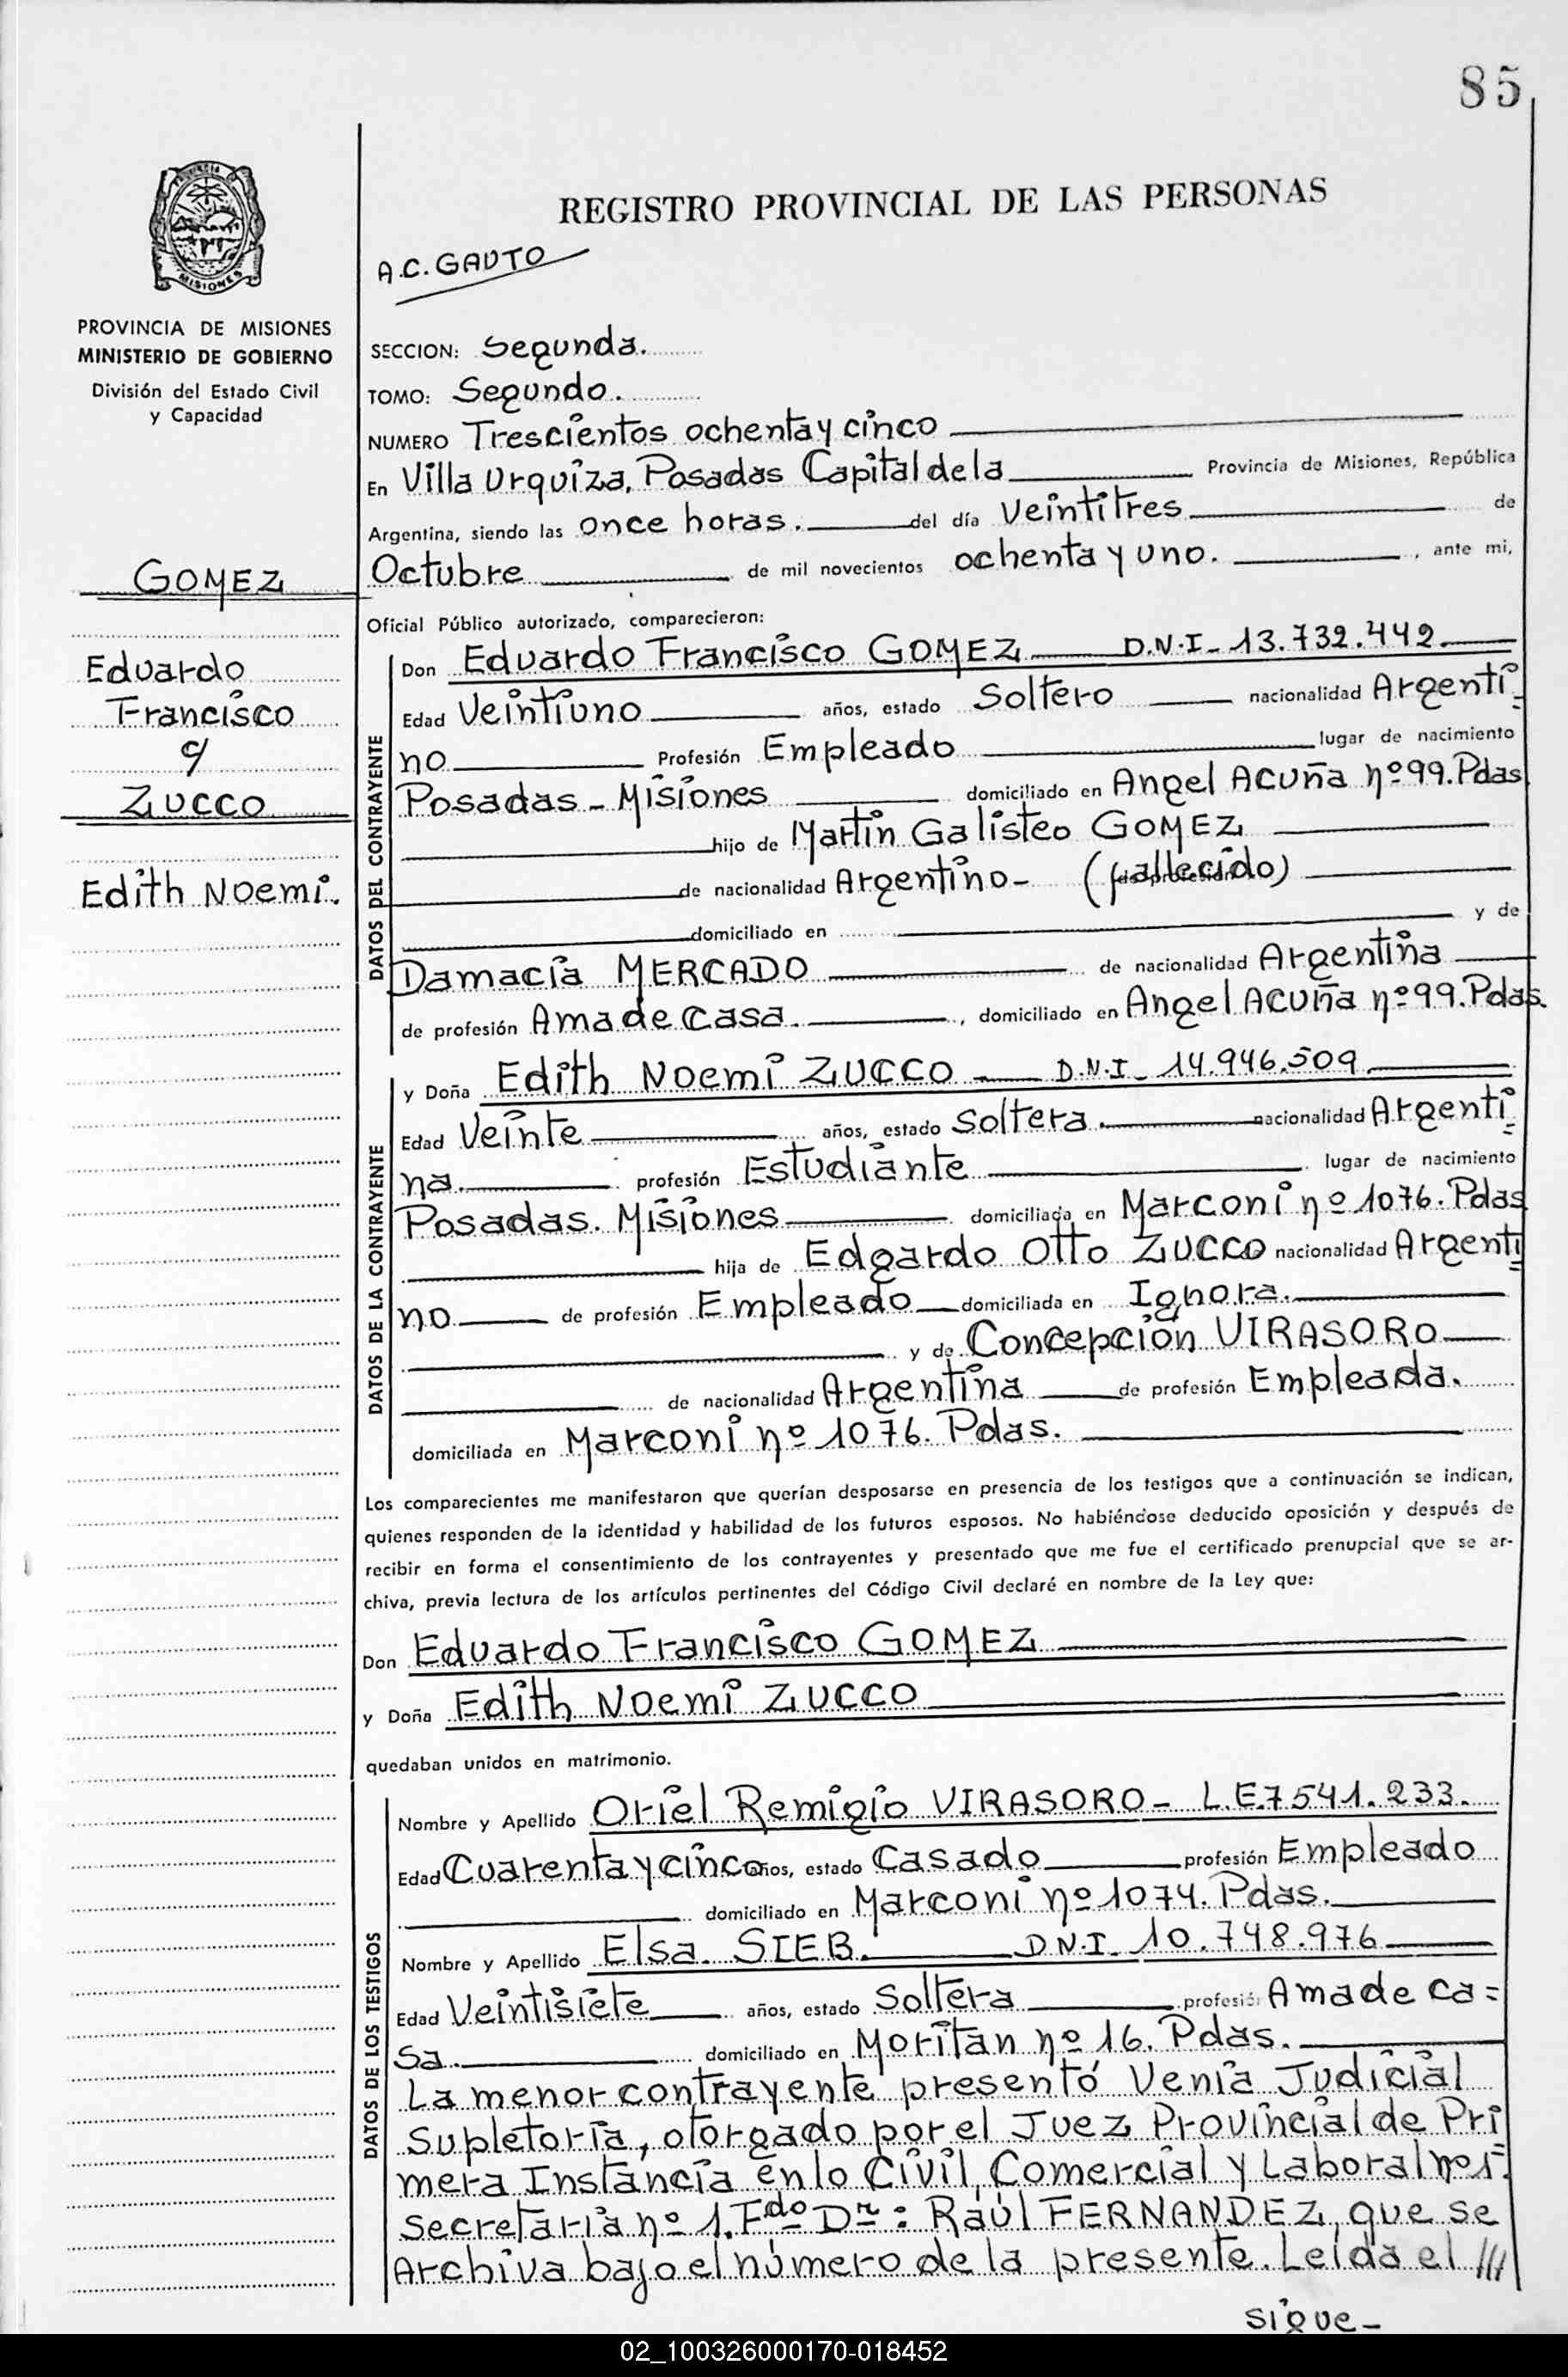 85
MISIONES
REGISTRO PROVINCIAL DE LAS PERSONAS
A.C. GAUTO
PROVINCIA DE MISIONES
MINISTERIO DE GOBIERNO
División del Estado Civil
y Capacidad
GOMEZ
Eduardo
Francisco
c/
ZUCCO
Edith Noemi.
SECCION: Segunda.
TOMO: Segundo.
NUMERO Trescientos ochenta y cinco
En Villa Urquiza, Posadas Capital de la Provincia de Misiones, República
Argentina, siendo las once horas. del día Veintitres de
Octubre de mil novecientos ochenta y uno. , ante mi,
Oficial Público autorizado, comparecieron:
DATOS DEL CONTRAYENTE
Don Eduardo Francisco GOMEZ D.N.I- 13.732.442.
Edad Veintiuno años, estado Soltero nacionalidad Argenti
no Profesión Empleado lugar de nacimiento
Posadas - Misiones domiciliado en Angel Acuña nº 99. Pdas
hijo de Martin Galisteo GOMEZ
de nacionalidad Argentino- (fallecido)
domiciliado en y de
Damacia MERCADO de nacionalidad Argentina
de profesión Ama de Casa. , domiciliado en Angel Acuña nº 99. Pdas.
DATOS DE LA CONTRAYENTE
y Doña Edith Noemi ZUCCO D.N.I- 14.946.509
Edad Veinte años, estado Soltera. nacionalidad Argenti
na. profesión Estudiante lugar de nacimiento
Posadas. Misiones domiciliada en Marconi nº 1076. Pdas
hija de Edgardo Otto ZUCCO nacionalidad Argenti
no de profesión Empleado domiciliada en Ignora.
y de Concepción VIRASORO
de nacionalidad Argentina de profesión Empleada.
domiciliada en Marconi nº 1076. Pdas.
Los comparecientes me manifestaron que querían desposarse en presencia de los testigos que a continuación se indican,
quienes responden de la identidad y habilidad de los futuros esposos. No habiéndose deducido oposición y después de
recibir en forma el consentimiento de los contrayentes y presentado que me fue el certificado prenupcial que se ar-
chiva, previa lectura de los artículos pertinentes del Código Civil declaré en nombre de la Ley que:
Don Eduardo Francisco GOMEZ
y Doña Edith Noemi ZUCCO
quedaban unidos en matrimonio.
DATOS DE LOS TESTIGOS
Nombre y Apellido Oriel Remigio VIRASORO- L.E.7541.233.
Edad Cuarenta y cinco años, estado Casado profesión Empleado
domiciliado en Marconi nº 1074. Pdas.
Nombre y Apellido Elsa SIEB. D.N.I. 10.748.976
Edad Veintisiete años, estado Soltera profesión Ama de ca=
sa. domiciliado en Moritan nº 16. Pdas.
La menor contrayente presentó Venia Judicial
Supletoria, otorgado por el Juez Provincial de Pri
mera Instancia en lo Civil, Comercial y Laboral nº 1.
Secretaría nº 1. Fdo Dr: Raúl FERNANDEZ, que se
Archiva bajo el número de la presente. Leída el ///
sigue-
02_100326000170-018452